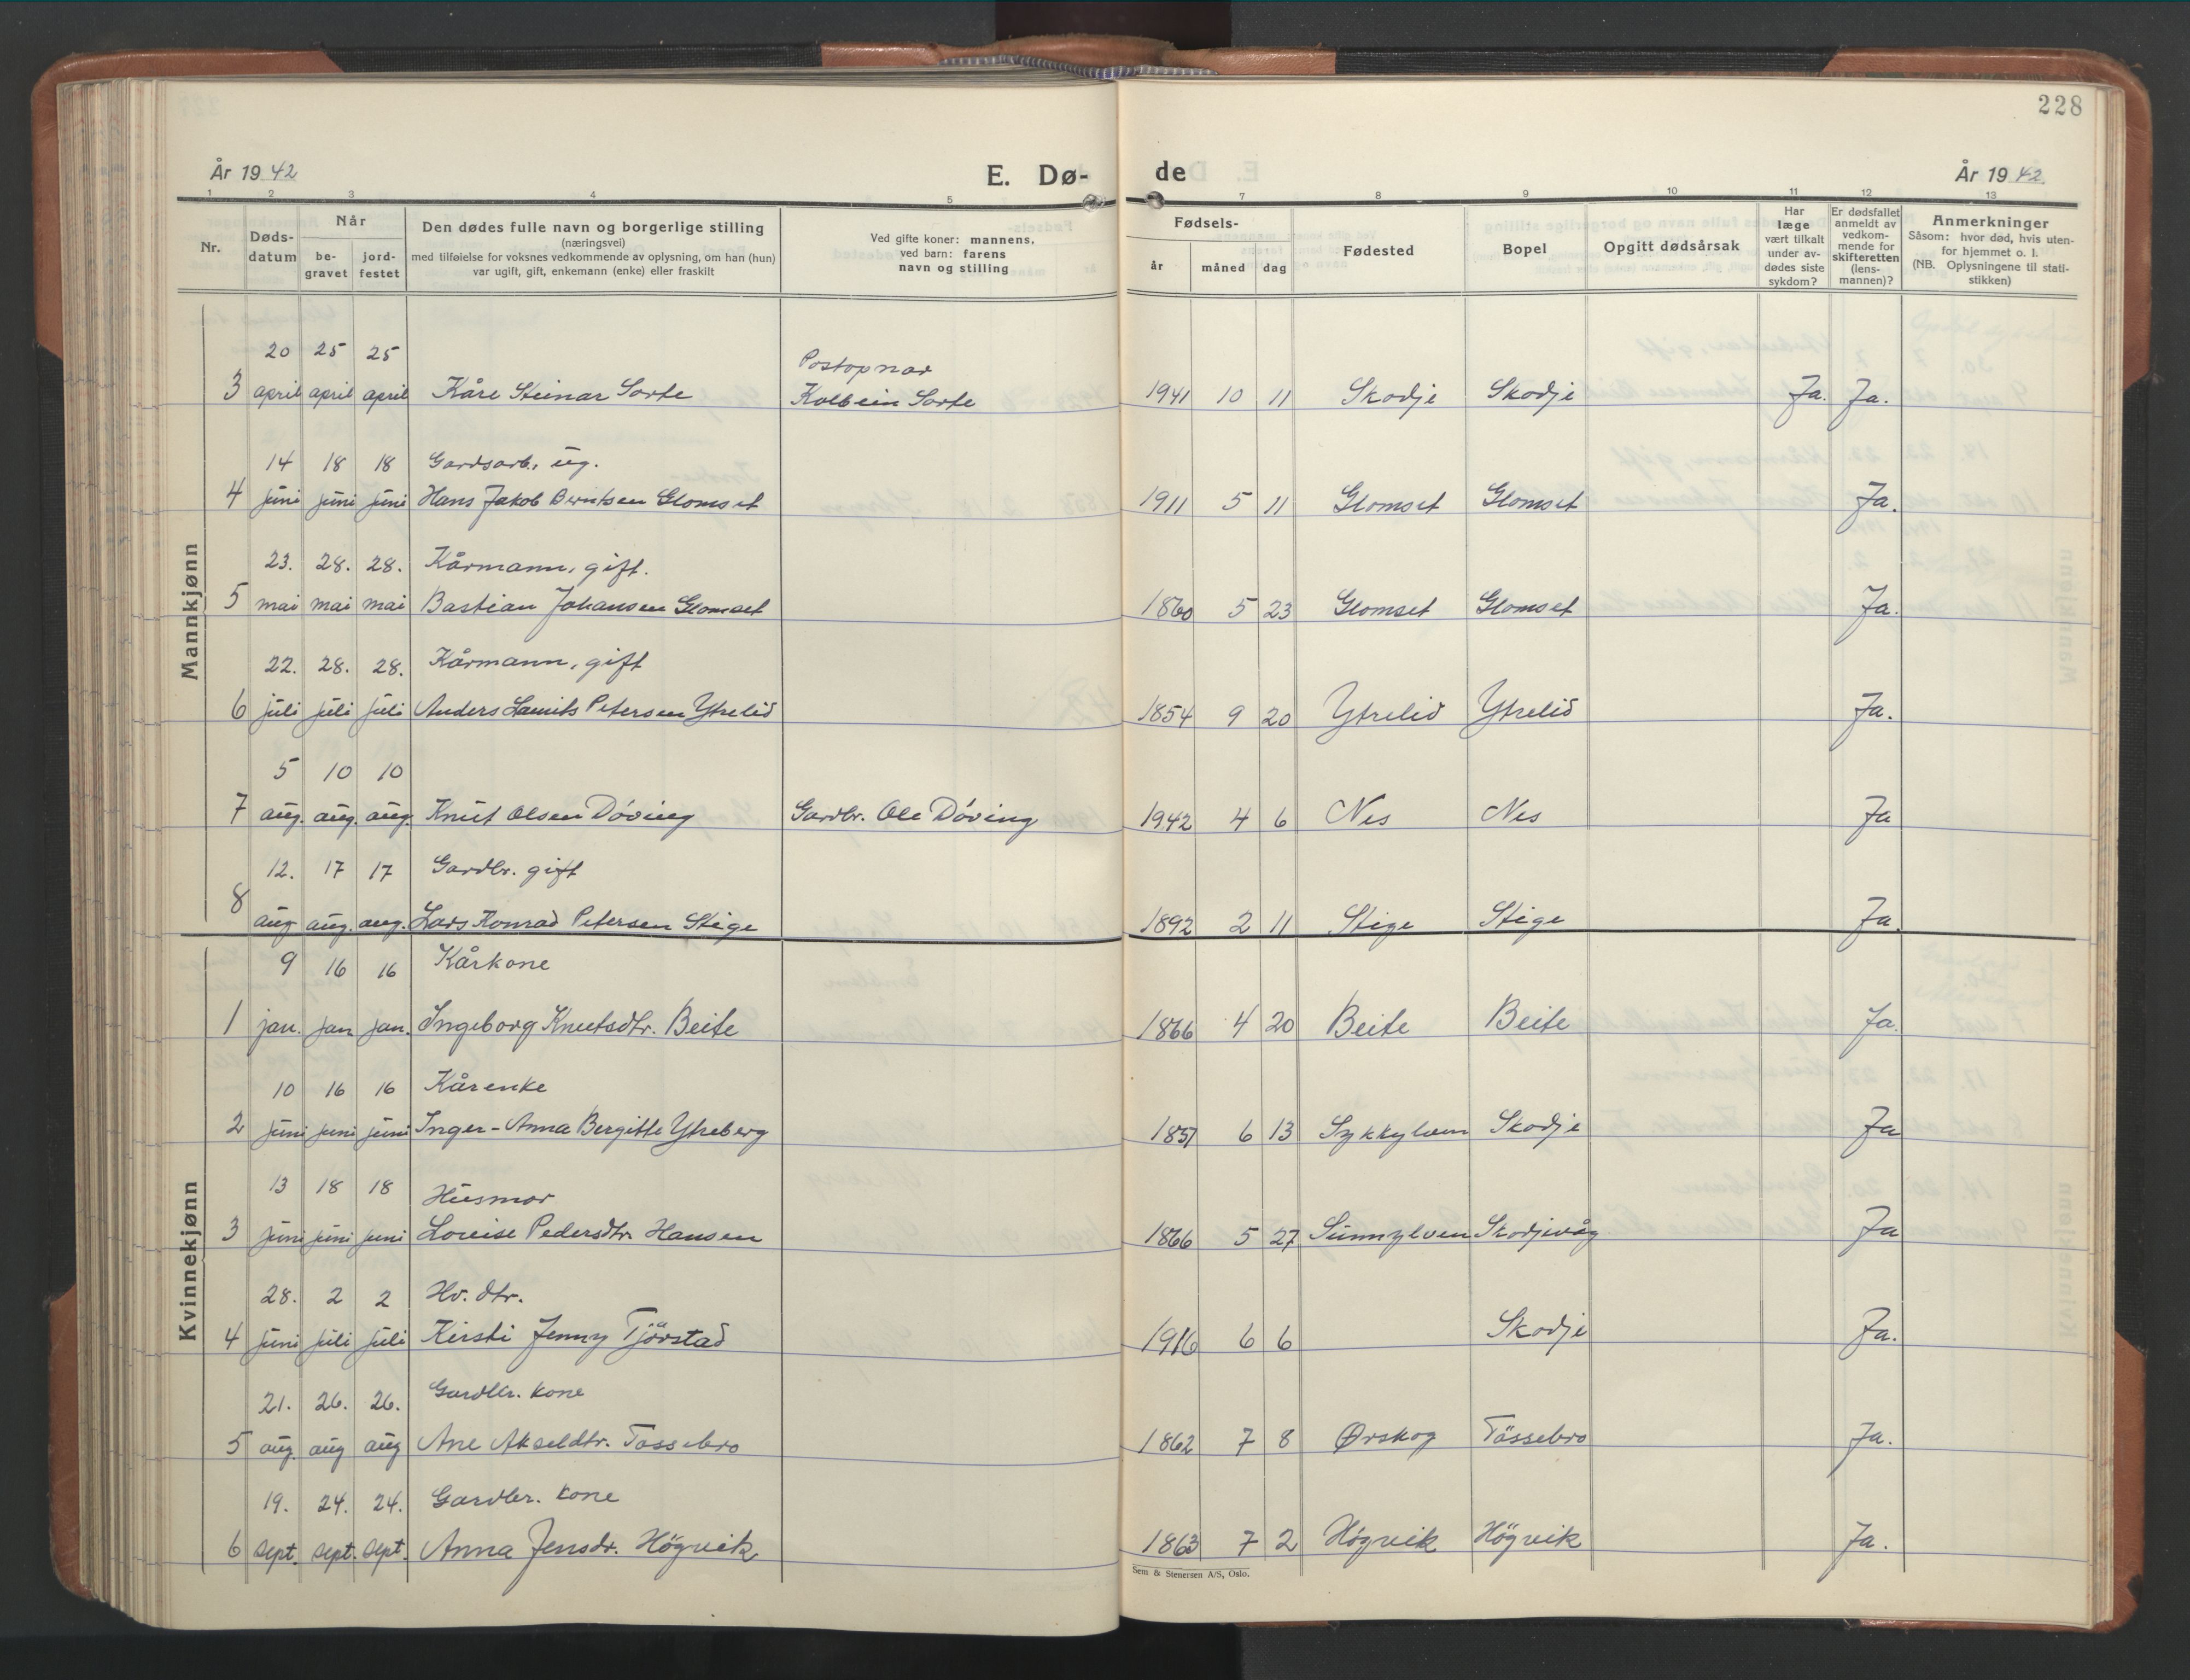 228
År 1942
E. Dø-
de
År 1942
1 2 3 4 5 7 8 9 10 11 12 13
Nr.
Døds-
datum
Når
be-
gravet
jord-
festet
Den dødes fulle navn og borgerlige stilling
(næringsvei)
med tilføielse for voksnes vedkommende av oplysning, om han (hun)
var ugift, gift, enkemann (enke) eller fraskilt
Ved gifte koner: mannens,
ved barn: farens
navn og stilling
Fødsels-
år måned dag
Fødested
Bopel
Opgitt dødsårsak
Har
læge
vært tilkalt
under av-
dødes siste
sykdom?
Er dødsfallet
anmeldt av
vedkom-
mende for
skifteretten
(lens-
mannen)?
Anmerkninger
Såsom: hvor død, hvis uten-
for hjemmet o. l.
(NB. Oplysningene til stati-
stikken)
Mannkjønn
20 25 25 Postopnar
3 april april april Kåre Steinar Sorte Kolbein Sorte 1941 10 11 Skodje Skodje Ja. Ja.
14 18 18 Gardsarb., ug.
4 juni juni juni Hans Jakob Berntsen Glomset 1911 5 11 Glomset Glomset Ja.
23. 28. 28. Kårmann, gift.
5 mai mai mai Bastian Johansen Glomset 1860 5 23 Glomset Glomset Ja.
22. 28. 28. Kårmann, gift
6 juli juli juli Anders Petersen Ytrelid 1854 9 20 Ytrelid Ytrelid Ja.
5 10 10
7 aug. aug. aug. Knut Olsen Döving Gardbr. Ole Döving 1942 4 6 Nes Nes Ja
12. 17 17 Gardbr. gift
8 aug aug. aug. Lars Konrad Petersen Stige 1892 2 11 Stige Stige Ja.
Kvinnekjønn
9 16 16 Kårkone
1 jan. jan jan. Ingeborg Knutsdtr. Beite 1866 4 20 Beite Beite Ja.
10 16 16 Kårenke
2 juni juni juni Inger-Anna Bergitte Ytreberg 1857 6 13 Sykkylven Skodje Ja
13 18 18 Husmor
3 juni juni juni Louise Pedersdtr. Hansen 1866 5 27 Sunnylven Skodjevåg Ja
28. 2 2 Hv. dtr.
4 juni juli juli Kirsti Jenny Tjörstad 1916 6 6 Skodje Ja.
21. 26. 26. Gardbr. kone
5 aug. aug aug Ane Akseldtr. Tossebro 1862 7 8 Ørskog Tössebro Ja.
19. 24. 24. Gardbr. kone
6 sept. sept. sept. Anna Jensdr. Högvik 1863 7 2 Högvik Högvik Ja.
Sem & Stenersen A/S, Oslo.